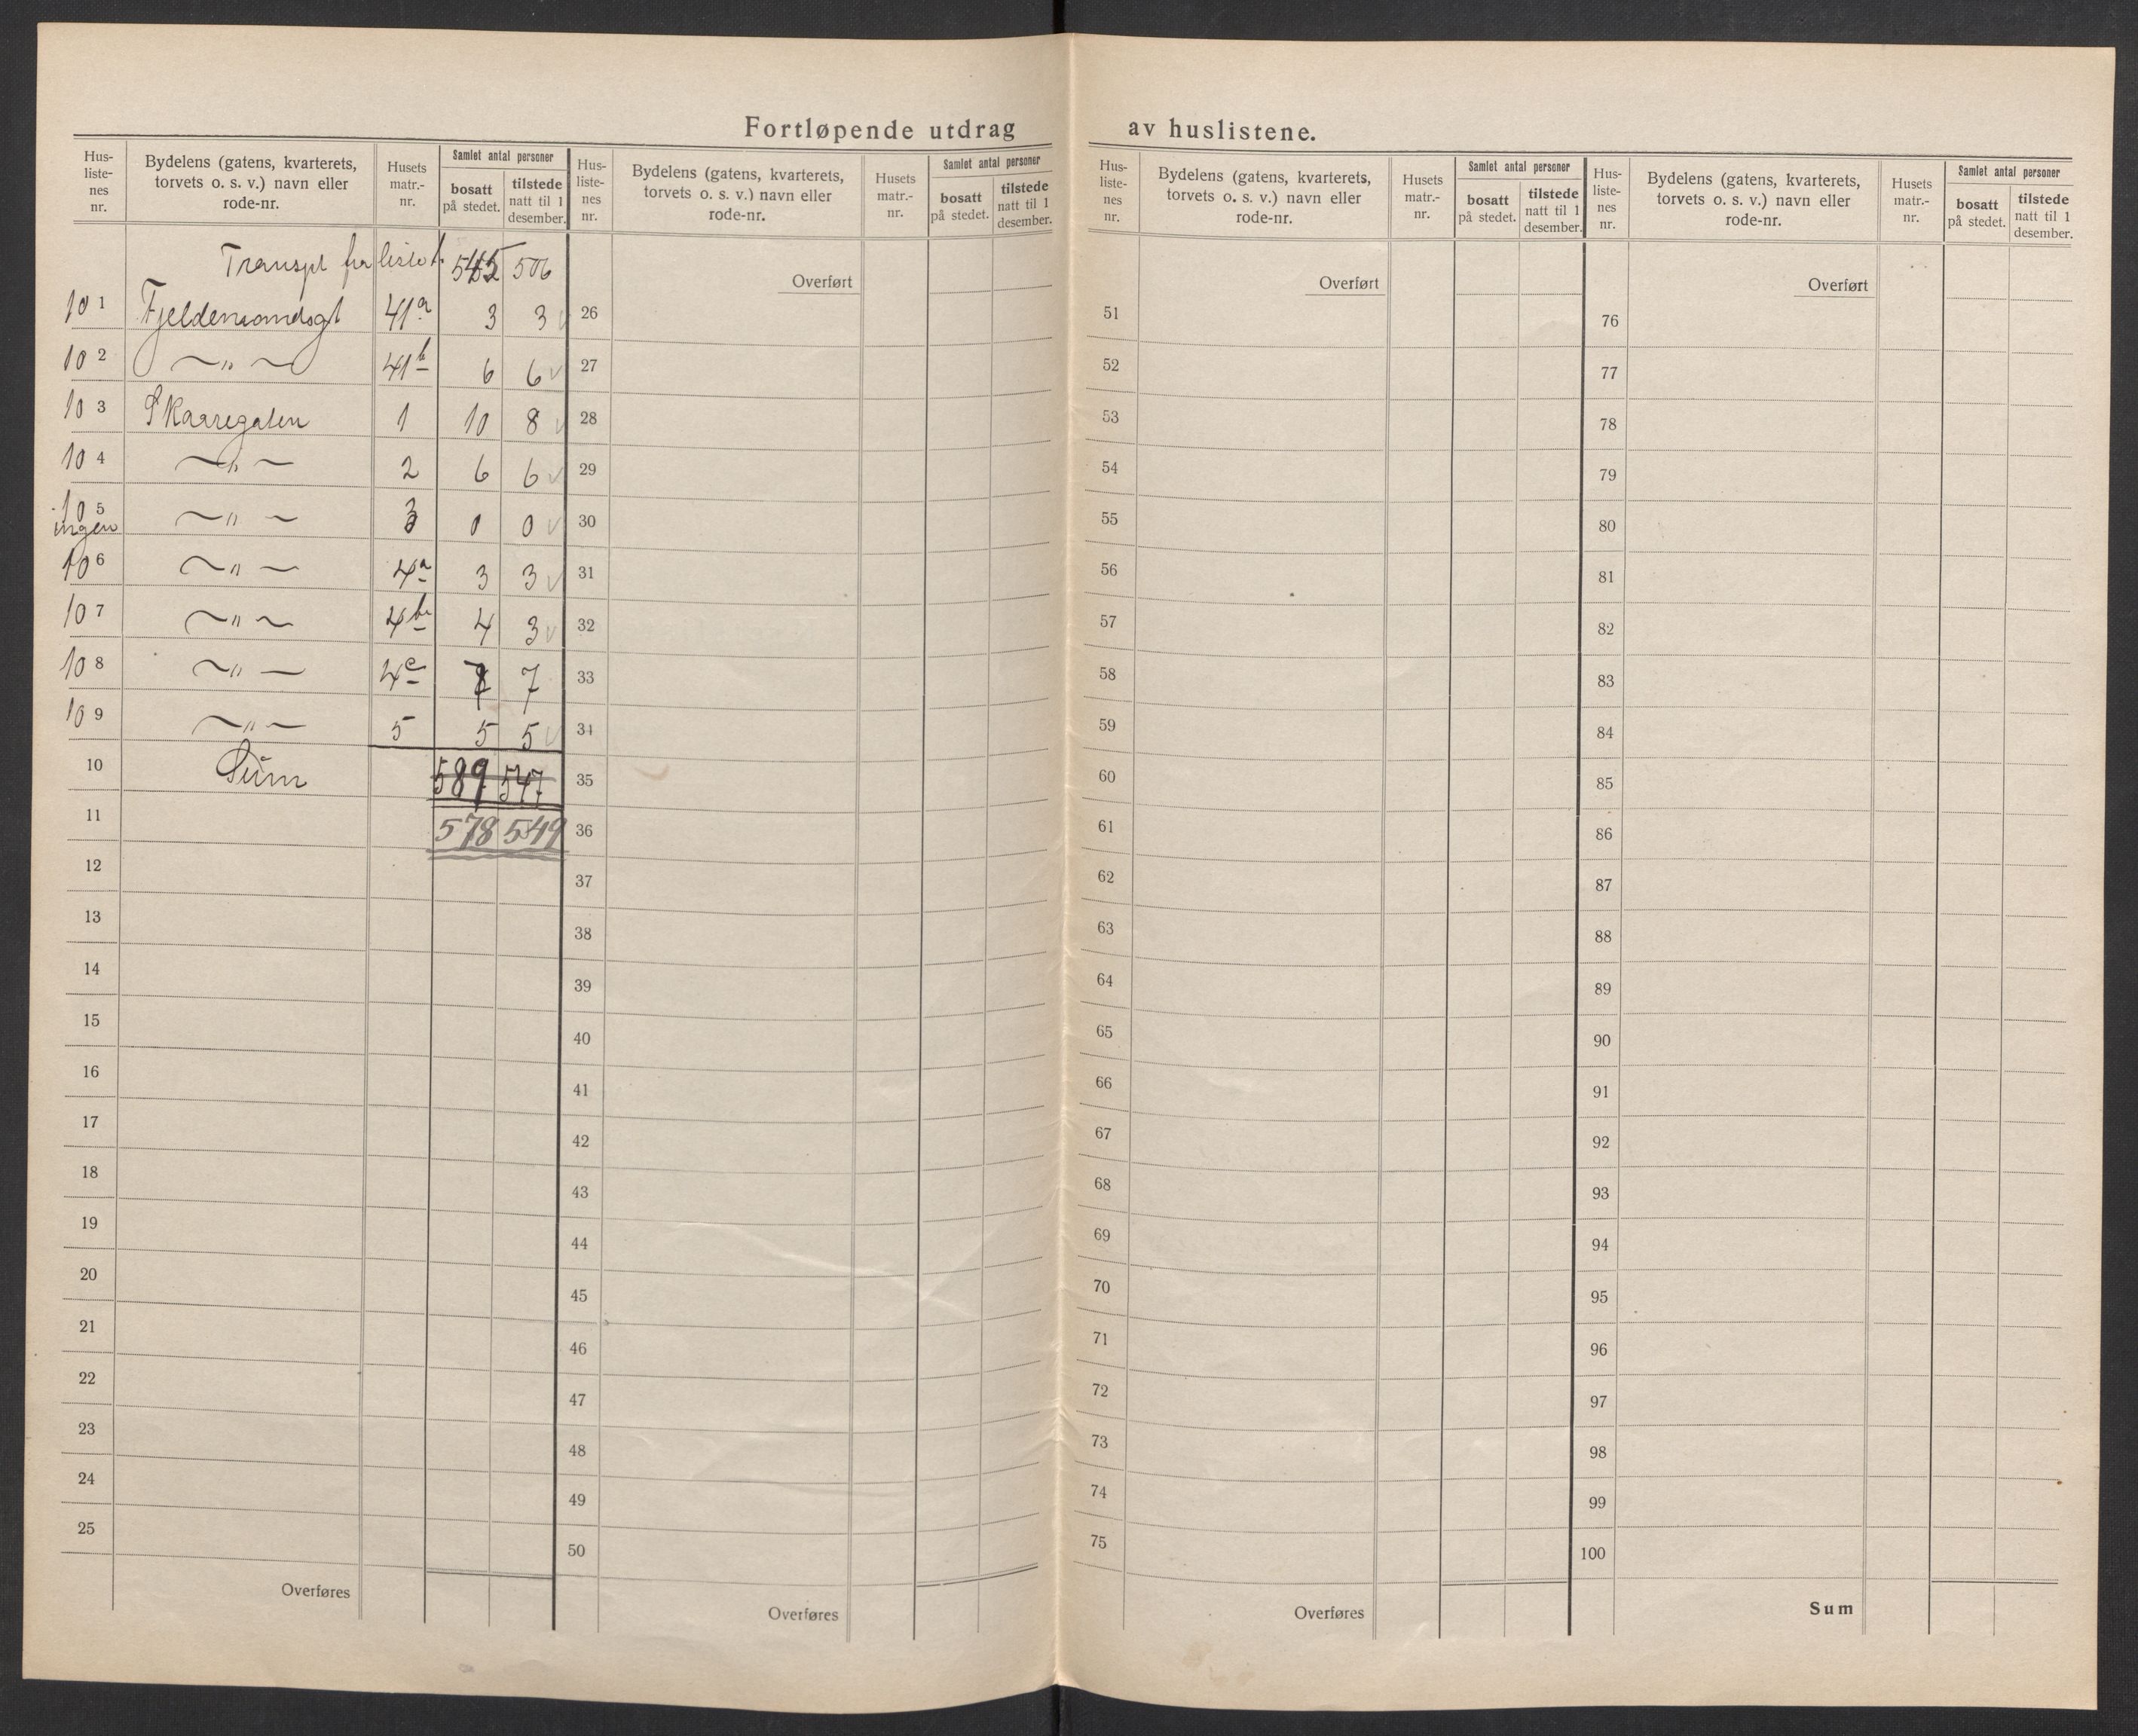 Fortløpende utdrag av huslistene.
Hus-liste-nes nr. | Bydelens (gatens, kvarterets, torvets o. s. v.) navn eller rode-nr. | Husets matr.-nr. | Samlet antal personer | bosatt på stedet. | tilstede natt til 1 desember.
Transpt fra liste 545 506
10 1 Fjeldensandsgt 41a 3 3
10 2 — " — 41b 6 6
10 3 Skaaregaten 1 10 8
10 4 — " — 2 6 6
10 5 ingen — " — 3 0 0
10 6 — " — 4a 3 3
10 7 — " — 4b 4 3
10 8 — " — 4c 7 7
10 9 — " — 5 5 5
10 Sum 589 547
11 578 549
12
13
14
15
16
17
18
19
20
21
22
23
24
25
Overføres
Hus-liste-nes nr. | Bydelens (gatens, kvarterets, torvets o. s. v.) navn eller rode-nr. | Husets matr.-nr. | Samlet antal personer | bosatt på stedet. | tilstede natt til 1 desember.
Overført
26
27
28
29
30
31
32
33
34
35
36
37
38
39
40
41
42
43
44
45
46
47
48
49
50
Overføres
Hus-liste-nes nr. | Bydelens (gatens, kvarterets, torvets o. s. v.) navn eller rode-nr. | Husets matr.-nr. | Samlet antal personer | bosatt på stedet. | tilstede natt til 1 desember.
Overført
51
52
53
54
55
56
57
58
59
60
61
62
63
64
65
66
67
68
69
70
71
72
73
74
75
Overføres
Hus-liste-nes nr. | Bydelens (gatens, kvarterets, torvets o. s. v.) navn eller rode-nr. | Husets matr.-nr. | Samlet antal personer | bosatt på stedet. | tilstede natt til 1 desember.
Overført
76
77
78
79
80
81
82
83
84
85
86
87
88
89
90
91
92
93
94
95
96
97
98
99
100
Sum